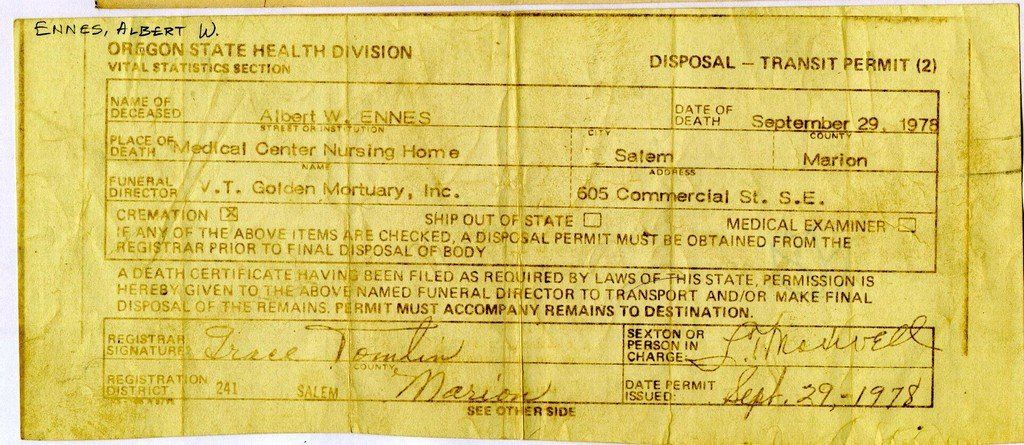 ENNES, ALBERT W.
OREGON STATE HEALTH DIVISION
VITAL STATISTICS SECTION
DISPOSAL — TRANSIT PERMIT (2)
NAME OF DECEASED Albert W. ENNES DATE OF DEATH September 29, 1978
STREET OR INSTITUTION CITY COUNTY
PLACE OF DEATH Medical Center Nursing Home Salem Marion
NAME ADDRESS
FUNERAL DIRECTOR V.T. Golden Mortuary, Inc. 605 Commercial St. S.E.
CREMATION ☒ SHIP OUT OF STATE ☐ MEDICAL EXAMINER ☐
IF ANY OF THE ABOVE ITEMS ARE CHECKED, A DISPOSAL PERMIT MUST BE OBTAINED FROM THE
REGISTRAR PRIOR TO FINAL DISPOSAL OF BODY
A DEATH CERTIFICATE HAVING BEEN FILED AS REQUIRED BY LAWS OF THIS STATE, PERMISSION IS
HEREBY GIVEN TO THE ABOVE NAMED FUNERAL DIRECTOR TO TRANSPORT AND/OR MAKE FINAL
DISPOSAL OF THE REMAINS. PERMIT MUST ACCOMPANY REMAINS TO DESTINATION.
REGISTRAR SIGNATURE: Grace Tomlin SEXTON OR PERSON IN CHARGE
COUNTY
REGISTRATION DISTRICT 241 SALEM Marion DATE PERMIT ISSUED: Sept. 29,-1978
SEE OTHER SIDE